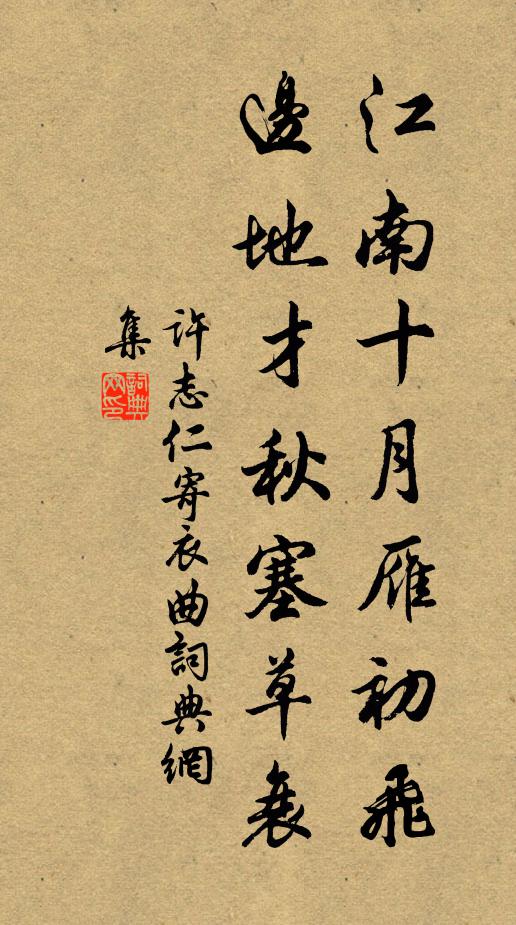 江南十月雁初飛
邊地才秋塞草衰
許志仁寄衣曲詞典網
集
詞典
網印